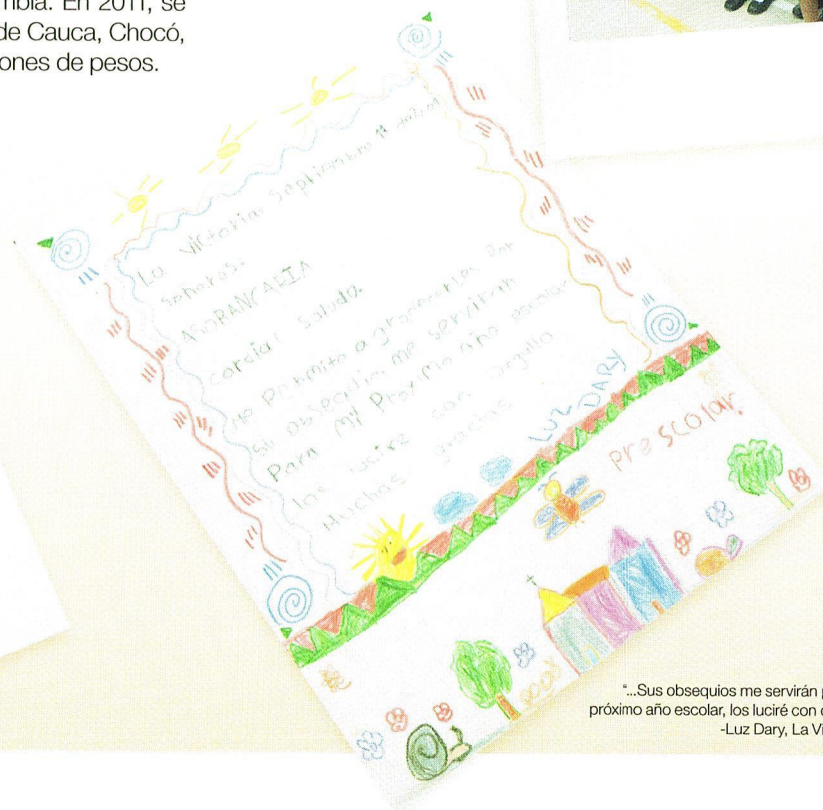 mbia. En 2011, se
de Cauca, Chocó,
ones de pesos.
La Victoria Septiembre 1ª
Señores:
ASOBANCARIA
Cordial Saludo.
me Permito a por
Su obsequio, me Servirán
Para My Proximo año escolar
los lucire con orgullo
Muchas gracias.
LUZ
DARY
Prescolar.
"...Sus obsequios me servirán
próximo año escolar, los luciré con
-Luz Dary, La Vi